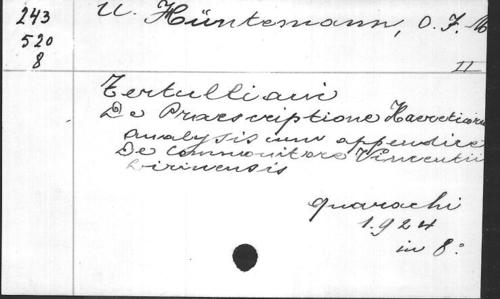 243
520
8
U. Hüntemann, O. F. M
II
Tertulliani
De Praescriptione Haereticoru
analysis cum appendice
De Commonitorio Vincentii
Lirinensis
Quarachi
1924
in 8: